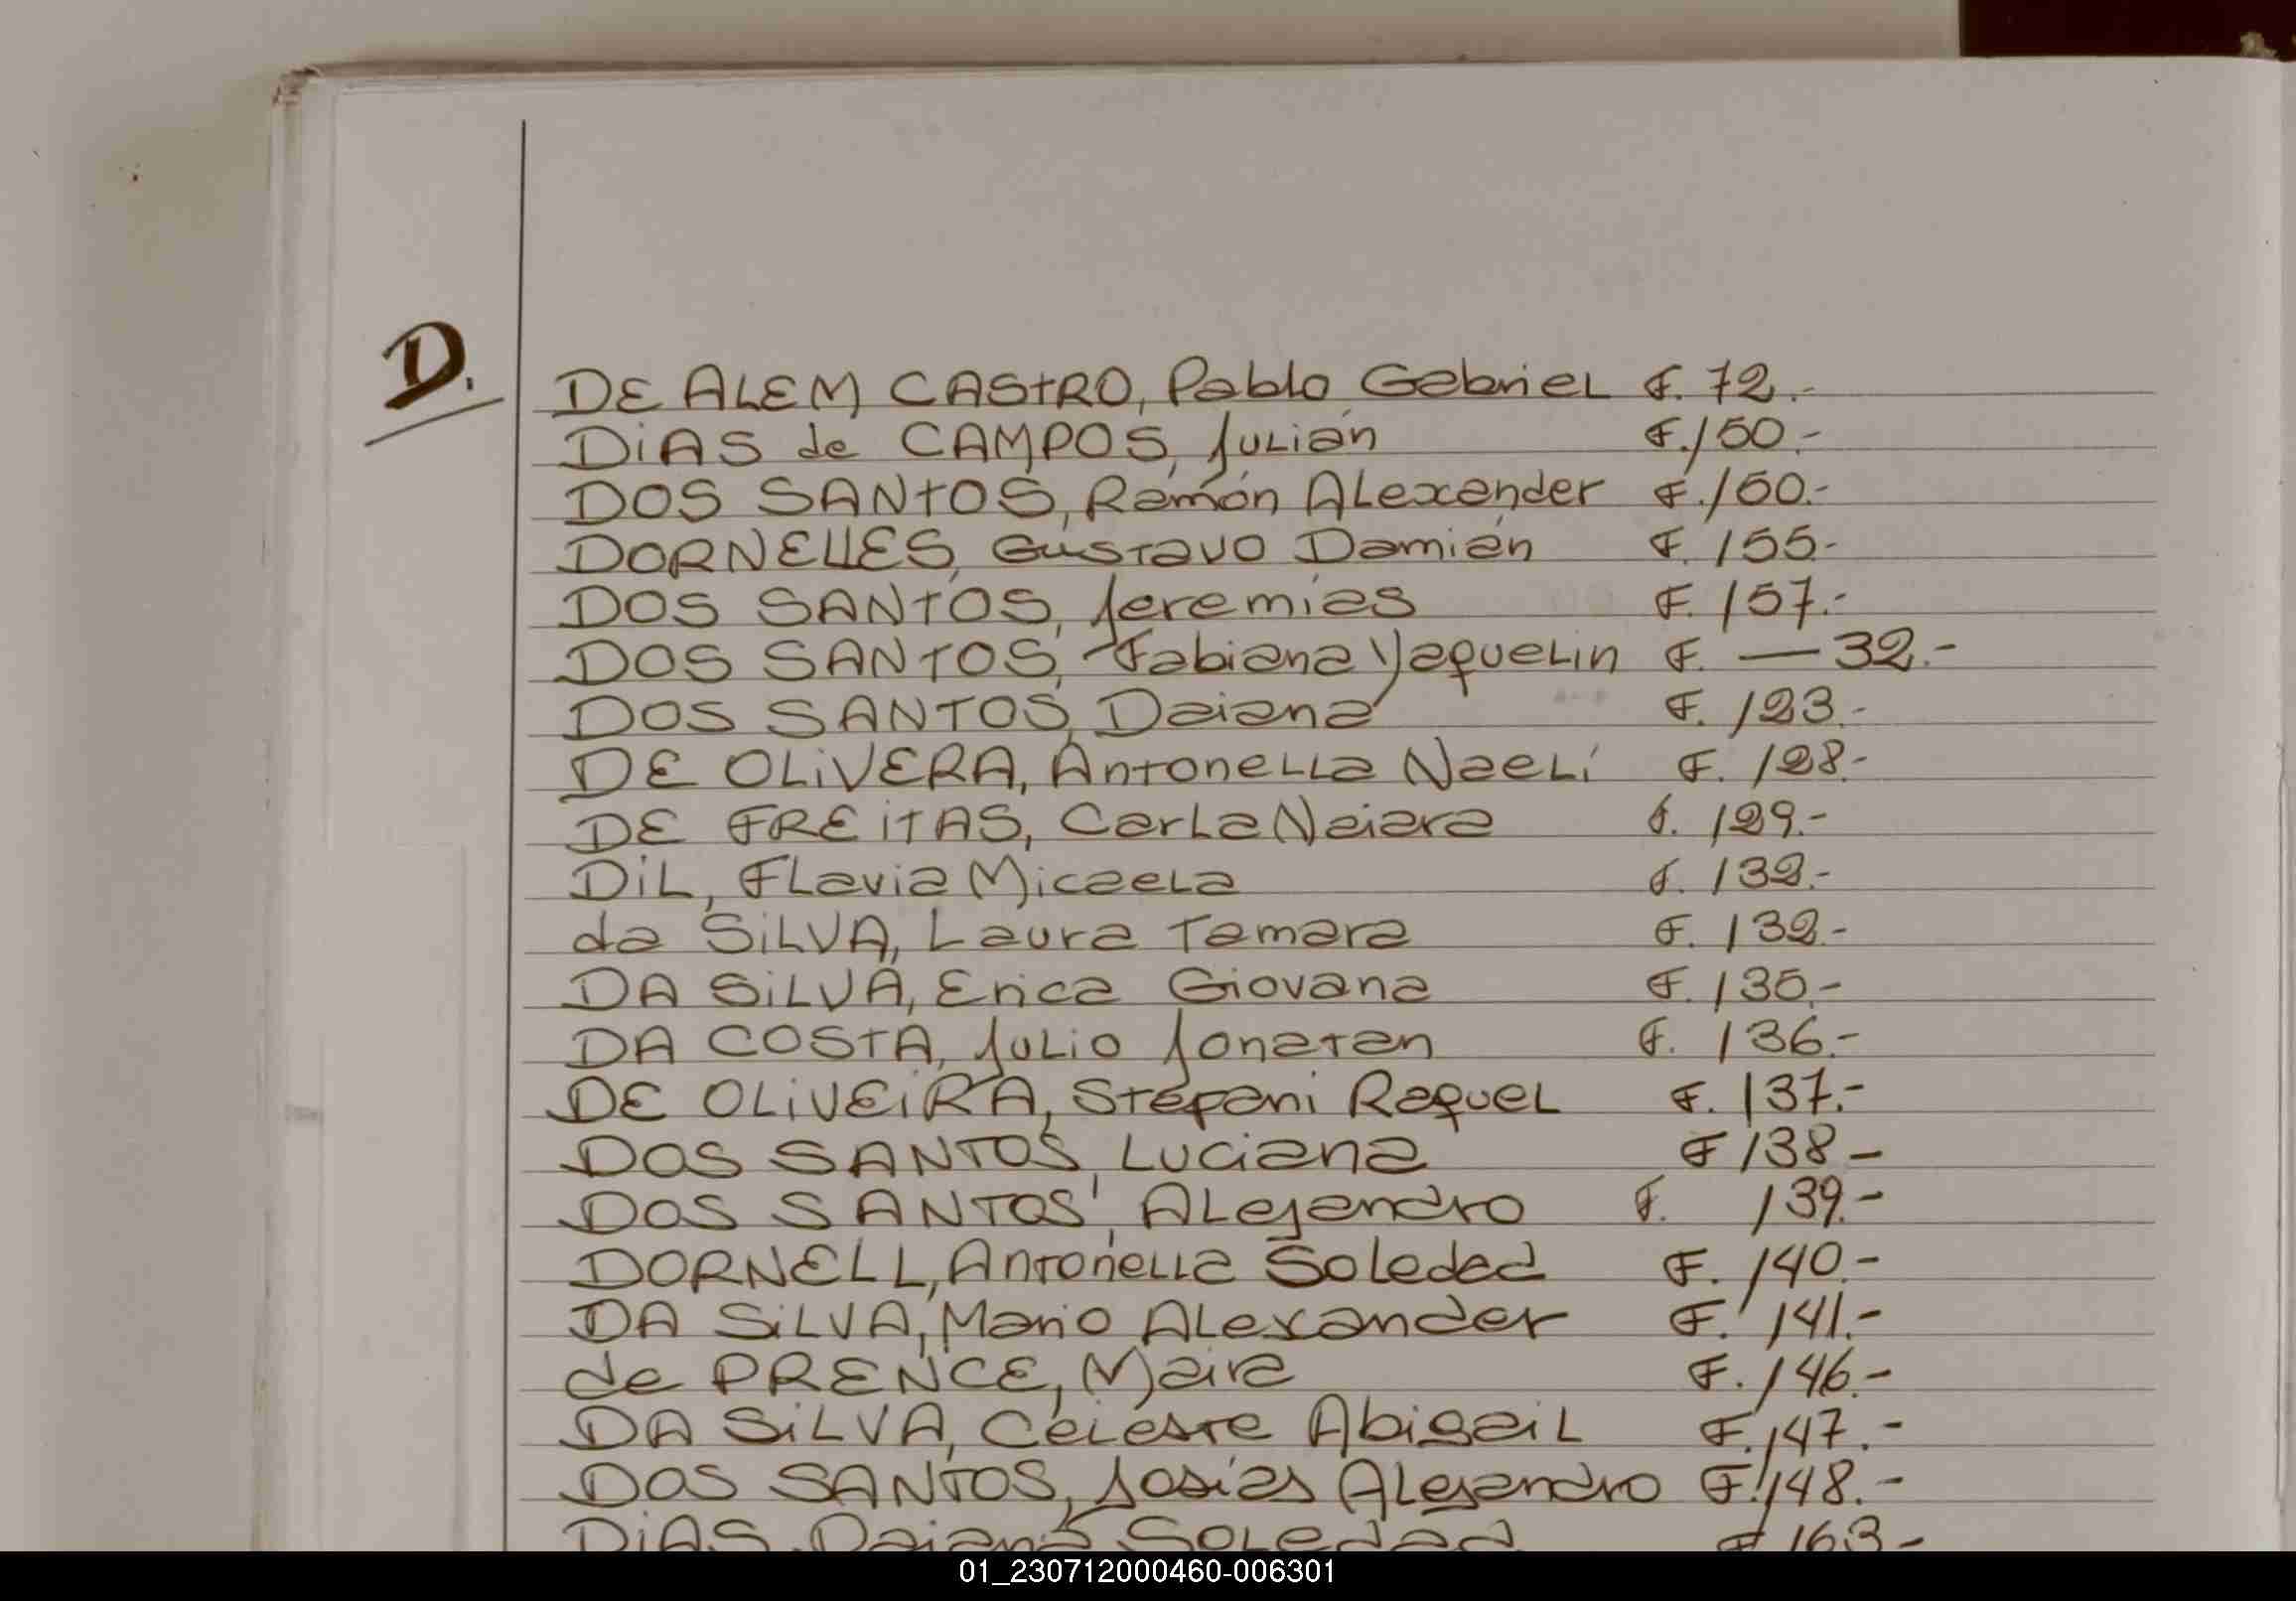 D.
DE ALEM CASTRO, Pablo Gabriel F. 72.-
DiAS de CAMPOS, Julián F. 150.-
DOS SANTOS, Ramón Alexander F. 150.-
DORNELLES, Gustavo Damián F. 155.-
DOS SANTOS, Jeremías F. 157.-
DOS SANTOS, Fabiana Yaquelin F. — 32.-
DOS SANTOS, Daiana F. 123.-
DE OLiVERA, Antonella Naelí F. 128.-
DE FREiTAS, Carla Naiara F. 129.-
DiL, Flavia Micaela F. 132.-
da SiLVA, Laura Tamara F. 132.-
DA SiLVA, Erica Giovana F. 135.-
DA COSTA, Julio Jonatan F. 136.-
DE OLiVEiRA, Stépani Raquel F. 137.-
DOS SANTOS, Luciana F 138-
DOS SANTOS, Alejandro F. 139.-
DORNELL, Antonella Soledad F. 140.-
DA SiLVA, Mario Alexander F. 141.-
de PRENCE, Maira F. 146.-
DA SiLVA, Celeste Abigail F. 147.-
DOS SANTOS, Josías Alejandro F. 148.-
DiAS, Daiana Soledad F 163-
01_230712000460-006301